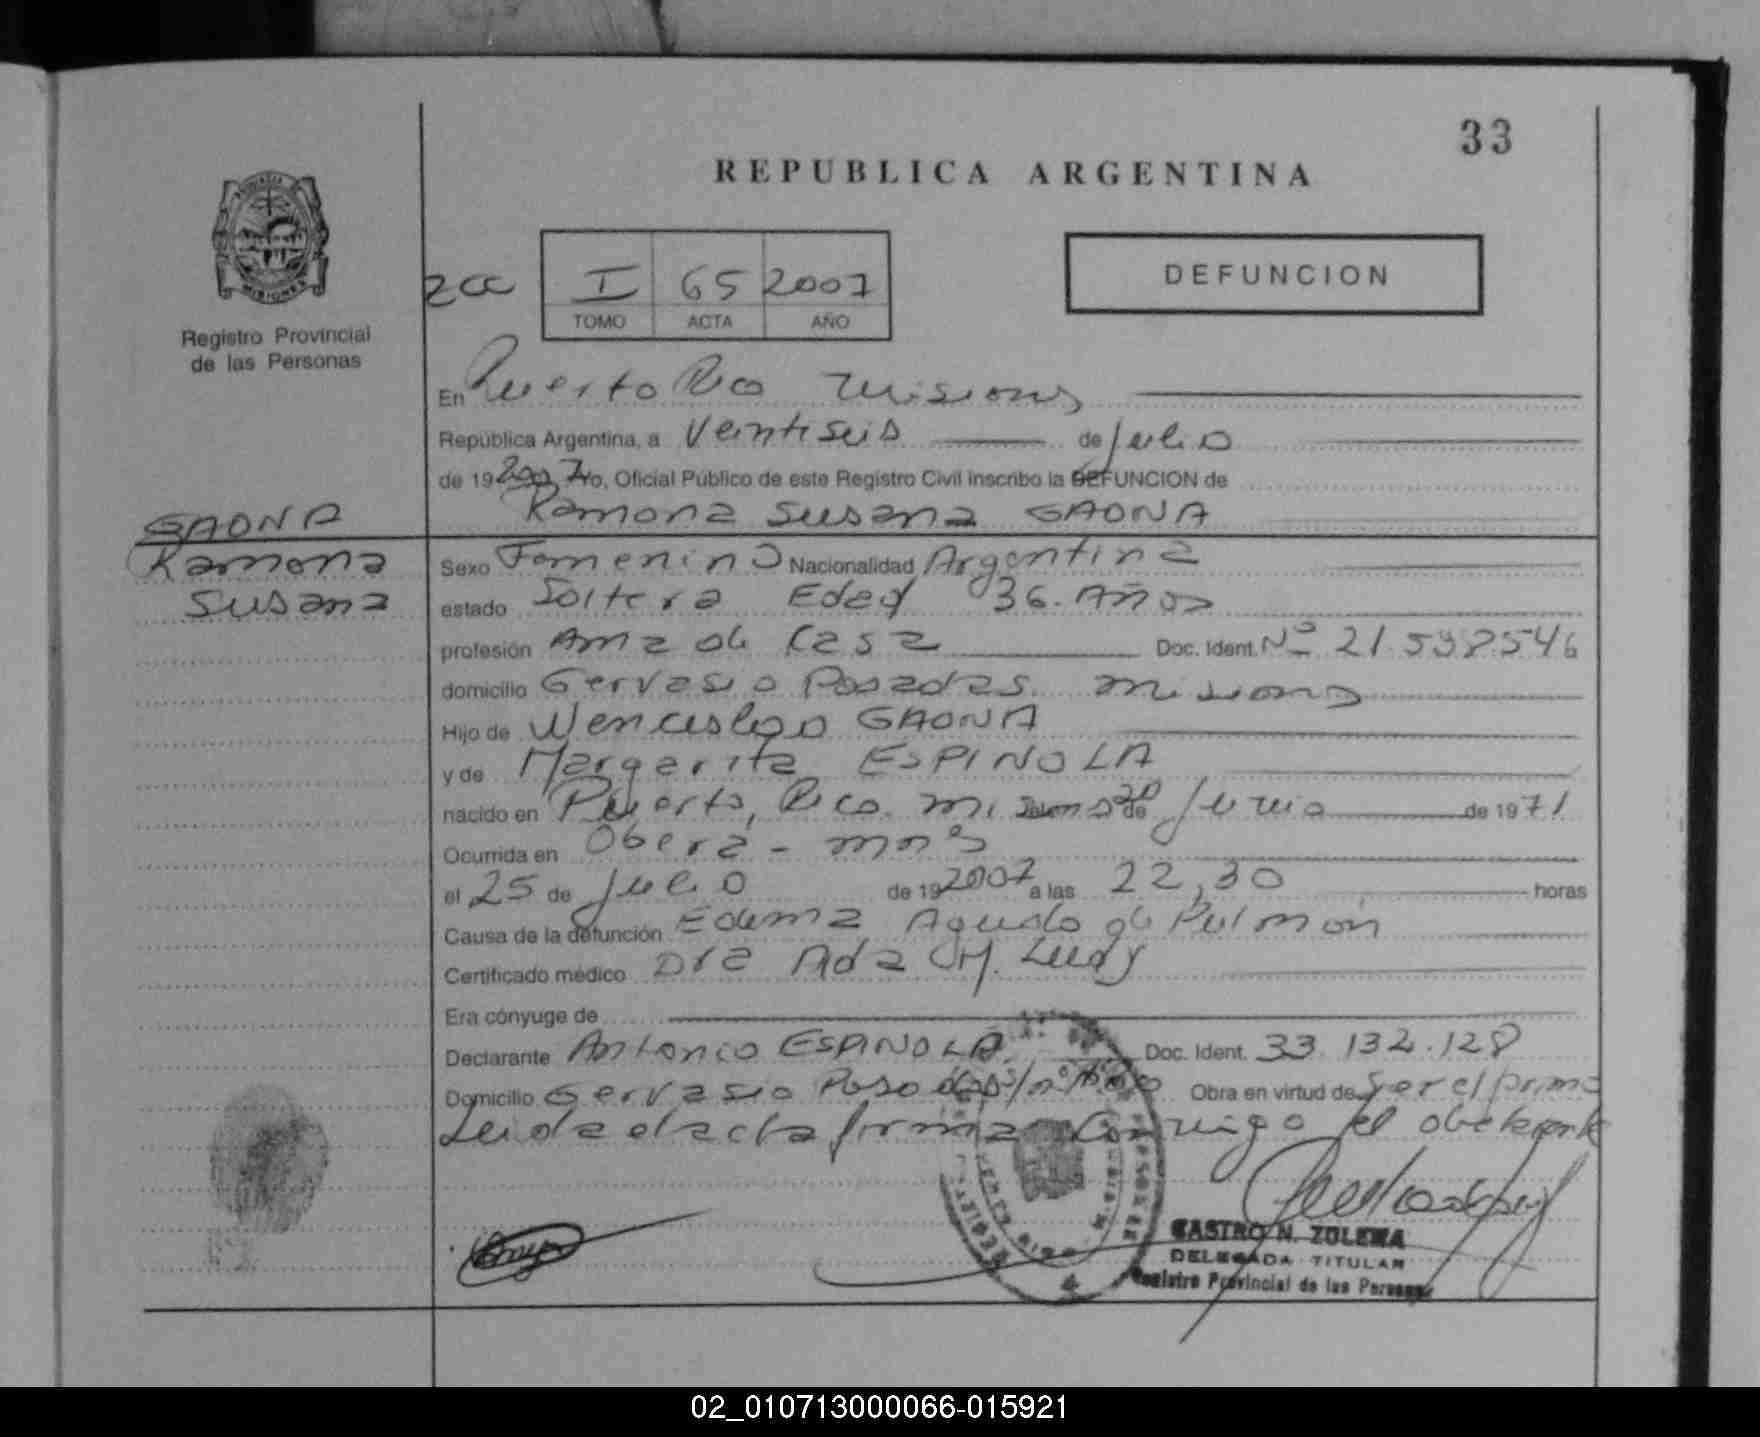 33
REPUBLICA ARGENTINA
PROVINCIA DE
MISIONES
Registro Provincial
de las Personas
2cc I 65 2007
TOMO ACTA AÑO
DEFUNCION
En Puerto Rico Misiones
República Argentina, a Veintiseis de Julio
de 19 2007 Yo, Oficial Público de este Registro Civil inscribo la DEFUNCION de
Ramona Susana GAONA
GAONA
Ramona
Susana
Sexo Femenino Nacionalidad Argentina
estado Soltera Edad 36. Años
profesión Ama de Casa Doc. Ident. Nº 21.538.546
domicilio Gervasio Posadas. Misiones
Hijo de Wenceslao GAONA
y de Margarita ESPINOLA
nacido en Puerto Rico. Misiones 20 de Junio de 1971
Ocurrida en Obera - Mnes
el 25 de Julio de 19 2007 a las 22,30 horas
Causa de la defunción Edema Agudo de Pulmón
Certificado médico Dra Ada M. Lugy
Era cónyuge de
Declarante Antonio ESPINOLA. Doc. Ident. 33.132.128
Domicilio Gervasio Posadas s/nº Obra en virtud de ser el primo
Leida el acta firma Conmigo el declarante
CASTRO N. ZULEMA
DELEGADA TITULAR
Registro Provincial de las Personas
02_010713000066-015921